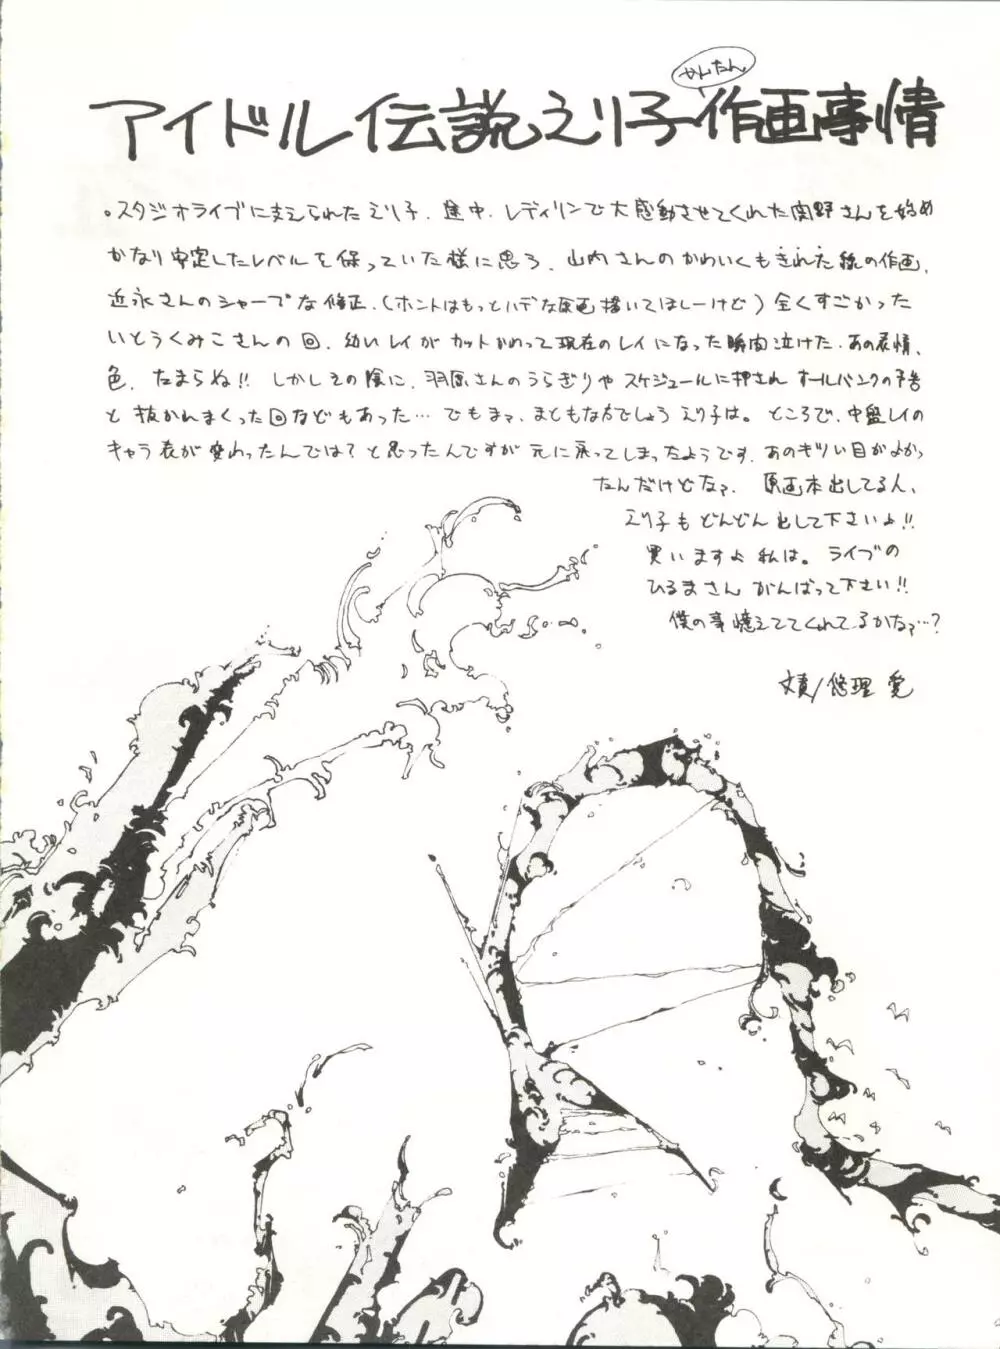 かんたん
アイドル伝説えり子作画事情
。スタジオライブに支えられたえり子、途中、レディリンで大感動させてくれた関野さんを始め
かなり安定したレベルを保っていた様に思う、山内さんのかわいくもきれた線の作画、
近永さんのシャープな修正、(ホントはもっとハデな原画描いてほしーけど)全くすごかった
いとうくみこさんの回、幼いレイがカットかわって現在のレイになった瞬間泣けた、あの表情、
色、たまらね!! しかしその陰に、羽原さんのうらぎりやスケジュールに押されオールバンクの予告
と抜かれまくった回などもあった…でもまァ、まともな方でしょうえり子は。ところで、中盤レイの
キャラ表が変わったんでは?と思ったんですが元に戻ってしまったようです、あのキツい目がよかっ
たんだけどなァ. 原画本出してる人、
えり子もどんどん出して下さいよ!!
買いますよ私は。ライブの
ひるまさんがんばって下さい!!
僕の事憶えててくれてるかなァ…?
文責/悠理 愛